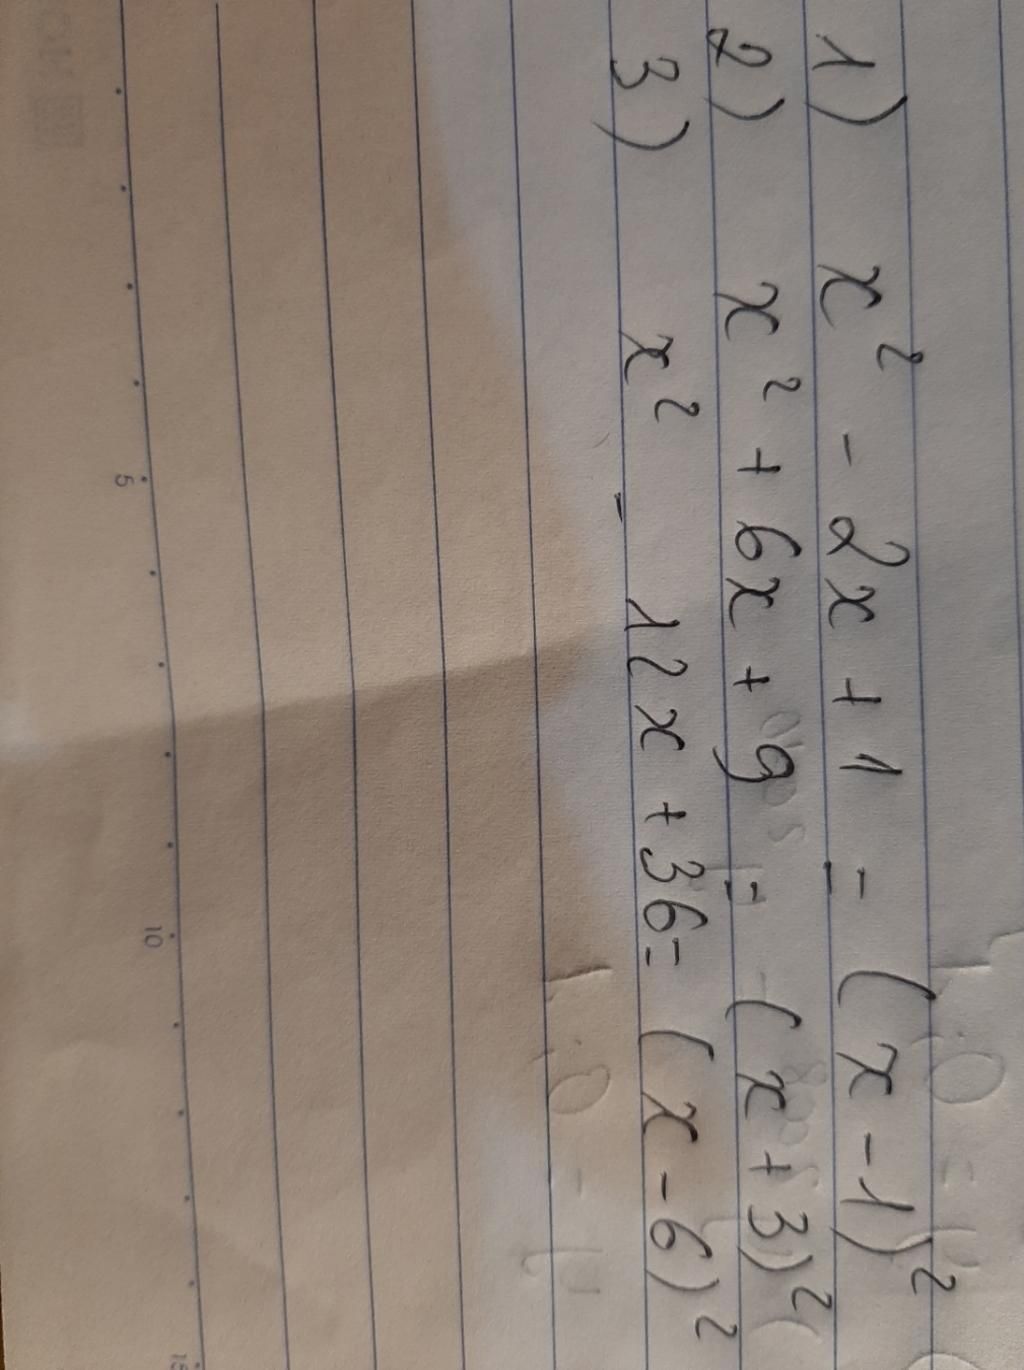 1) x² - 2x + 1 = (x - 1)²
2) x² + 6x + 9 = (x + 3)²
3) x² - 12x + 36 = (x - 6)²
5
10
15